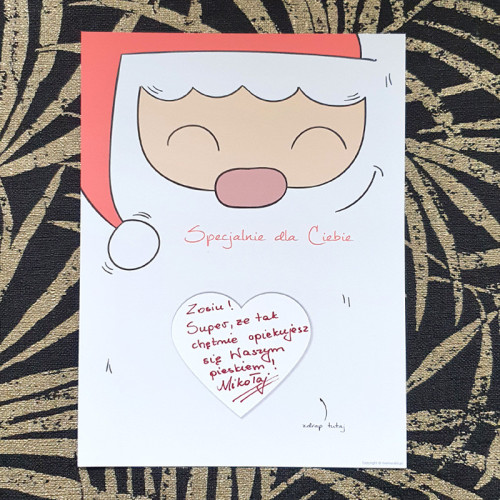 Specjalnie dla Ciebie
Zosiu!
Super, że tak
chętnie opiekujesz
się Waszym
pieskiem!
Mikołaj
zdrap tutaj